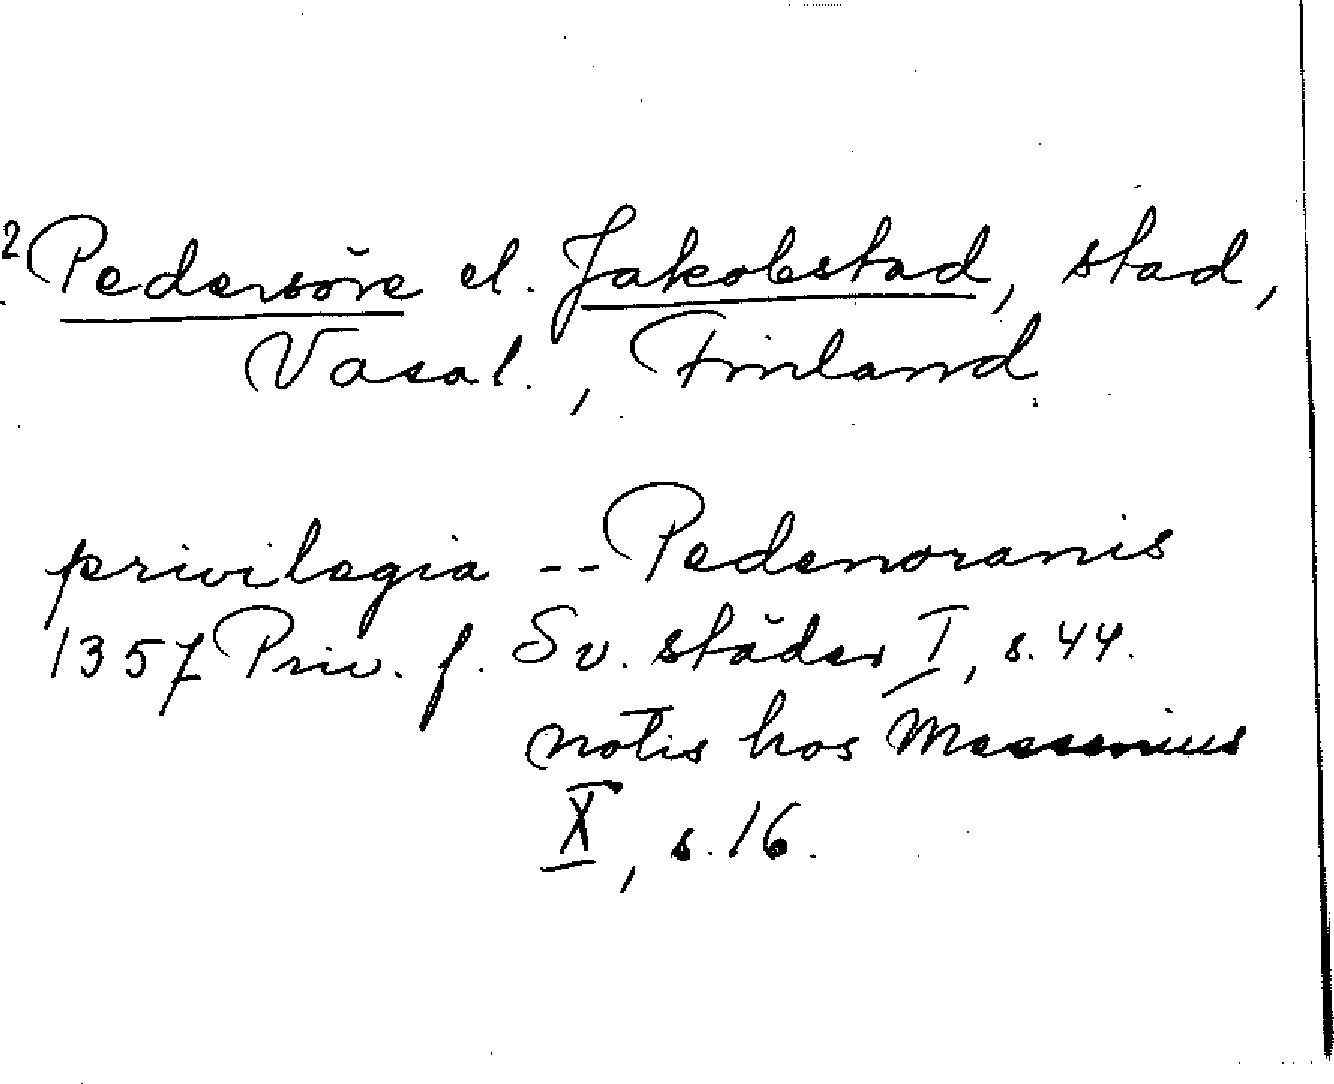 2 Pedersöre el. Jakobstad, stad,
Vasa l., Finland
privilegia -- Pedernoranis
1357 Priv. f. Sv. städer I, s. 44.
notis hos Messenius
X, s. 16.